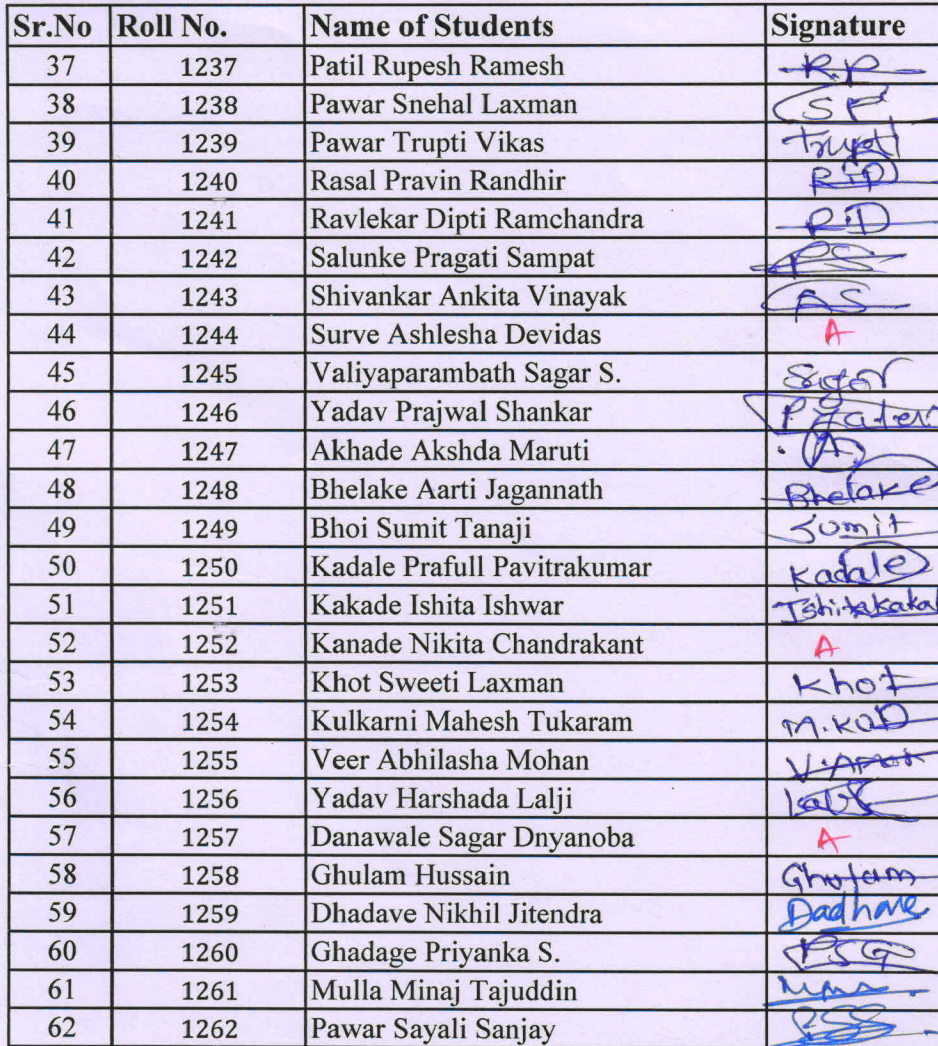 Sr.No Roll No. Name of Students Signature
37 1237 Patil Rupesh Ramesh R.P
38 1238 Pawar Snehal Laxman SP
39 1239 Pawar Trupti Vikas Trupti
40 1240 Rasal Pravin Randhir
41 1241 Ravlekar Dipti Ramchandra R.D
42 1242 Salunke Pragati Sampat PS
43 1243 Shivankar Ankita Vinayak AS
44 1244 Surve Ashlesha Devidas A
45 1245 Valiyaparambath Sagar S. Sagar
46 1246 Yadav Prajwal Shankar
47 1247 Akhade Akshda Maruti A
48 1248 Bhelake Aarti Jagannath Bhelake
49 1249 Bhoi Sumit Tanaji Sumit
50 1250 Kadale Prafull Pavitrakumar Kadale
51 1251 Kakade Ishita Ishwar Ishitakakad
52 1252 Kanade Nikita Chandrakant A
53 1253 Khot Sweeti Laxman Khot
54 1254 Kulkarni Mahesh Tukaram
55 1255 Veer Abhilasha Mohan
56 1256 Yadav Harshada Lalji
57 1257 Danawale Sagar Dnyanoba A
58 1258 Ghulam Hussain Ghulam
59 1259 Dhadave Nikhil Jitendra Dadhave
60 1260 Ghadage Priyanka S. PSG
61 1261 Mulla Minaj Tajuddin
62 1262 Pawar Sayali Sanjay